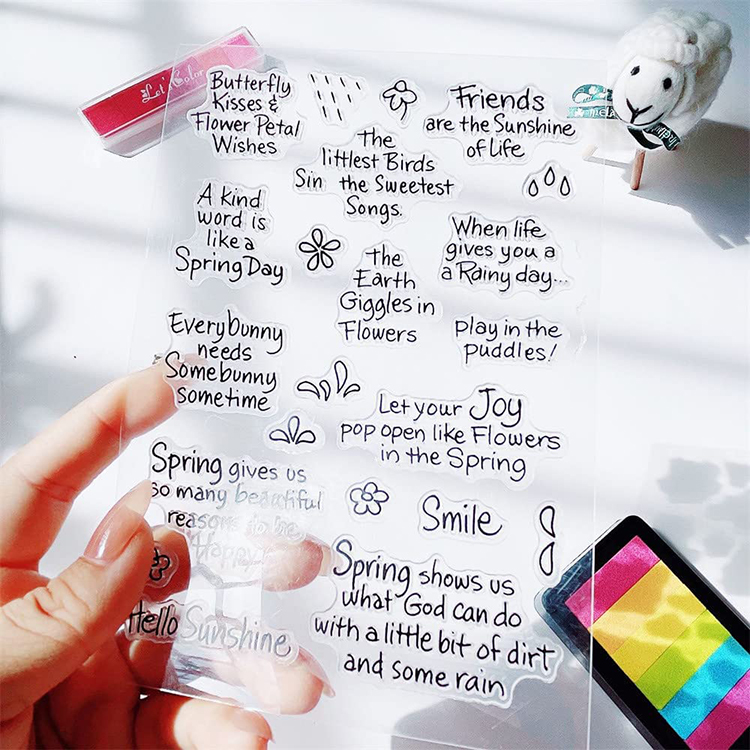 Let's Color
Butterfly
Kisses &
Flower Petal
Wishes
Friends
are the Sunshine
of Life
The
littlest Birds
Sin the Sweetest
Songs.
A kind
word is
like a
Spring Day
When life
gives you a
a Rainy day...
the
Earth
Giggles in
Flowers
play in the
puddles!
Everybunny
needs
Somebunny
sometime
Let your Joy
pop open like Flowers
in the Spring
Spring gives us
so many beautiful
reasons to be
Happy!
Smile
Spring shows us
what God can do
with a little bit of dirt
and some rain
Hello Sunshine